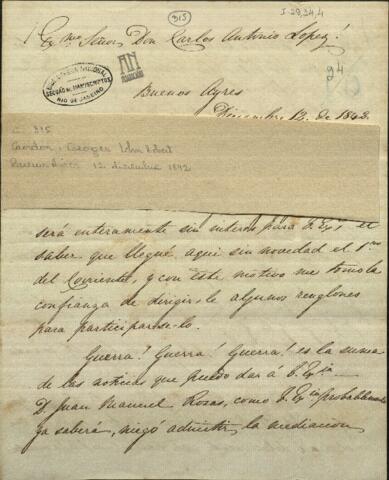 315
I-29,34,4
Exmo Señor Don Carlos Antonio López!
94
BIBLIOTHECA NACIONAL
SECÇÃO DE MANUSCRIPTOS
RIO DE JANEIRO
AN
Buenos Ayres
Diciembre 12. de 1842.
C. 315
Gordon, George John Robert
Buenos Aires 12 diciembre 1842
será enteramente sin interes para V. Exa el
saber que llegué aqui sin novedad el 1mo
del Corriente, y con este motivo me tomo la
confianza de dirigirle algunos renglones
para participarse-lo.
Guerra! Guerra! Guerra! es la suma
de las noticias que puedo dar á V. Exia
D. Juan Manuel Rosas, como V. Exia probablemente
ya sabrá, negó admitir la mediacion